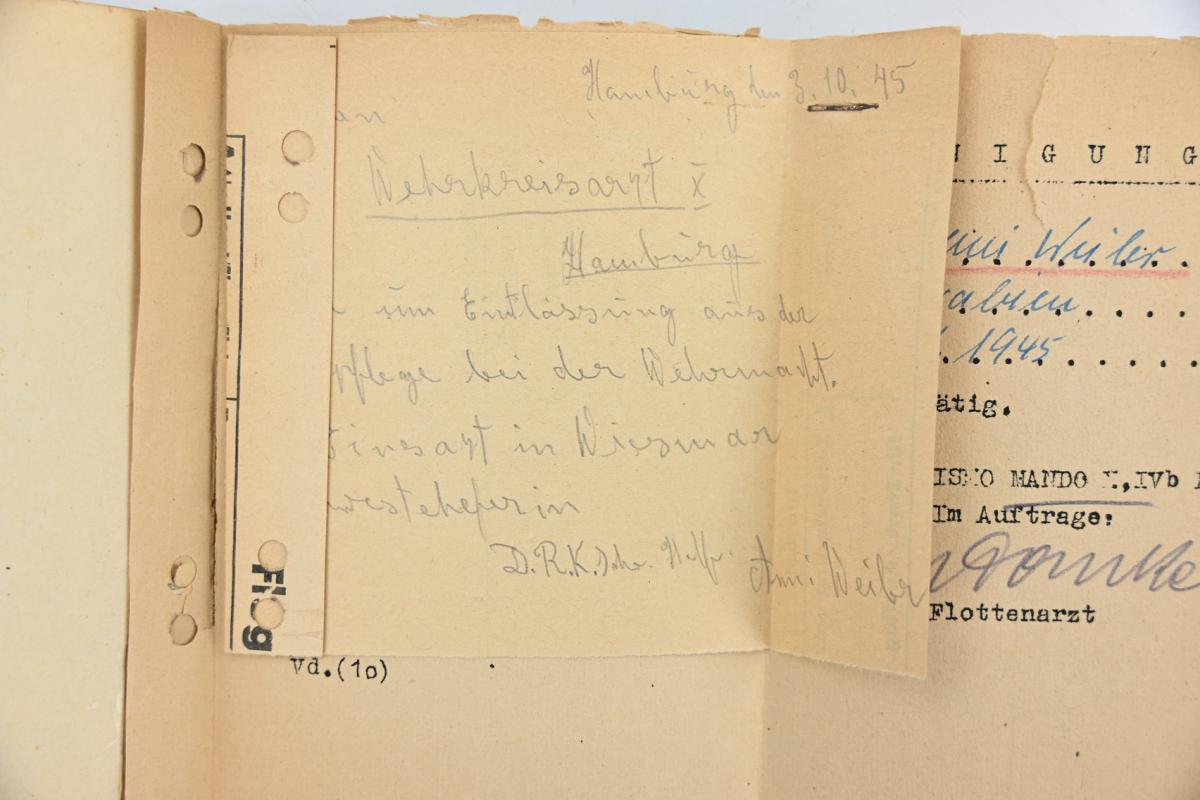 Hamburg den 3. 10. 45
an
Wehrkreisarzt X
Hamburg
um Entlassung aus der
pflege bei der Wehrmacht.
in Wiesmar
D.R.K. Schw. Helf. Anni Weiber
Vd.(10)
NIGUNG
nni Weiber.
1945
ätig.
MANDO X,IVb
Im Auftrage:
Flottenarzt